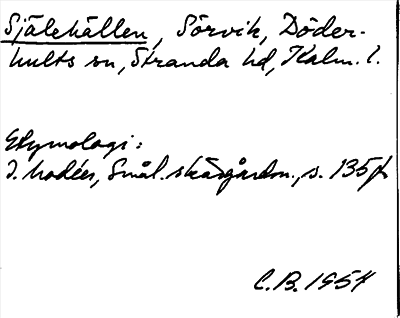 Själehällen, Sörvik, Döder-
hults sn, Stranda hd, Kalm. l.
Etymologi:
I. Modéer, Smål. skärgårdsn., s. 135 f
C.B. 1954